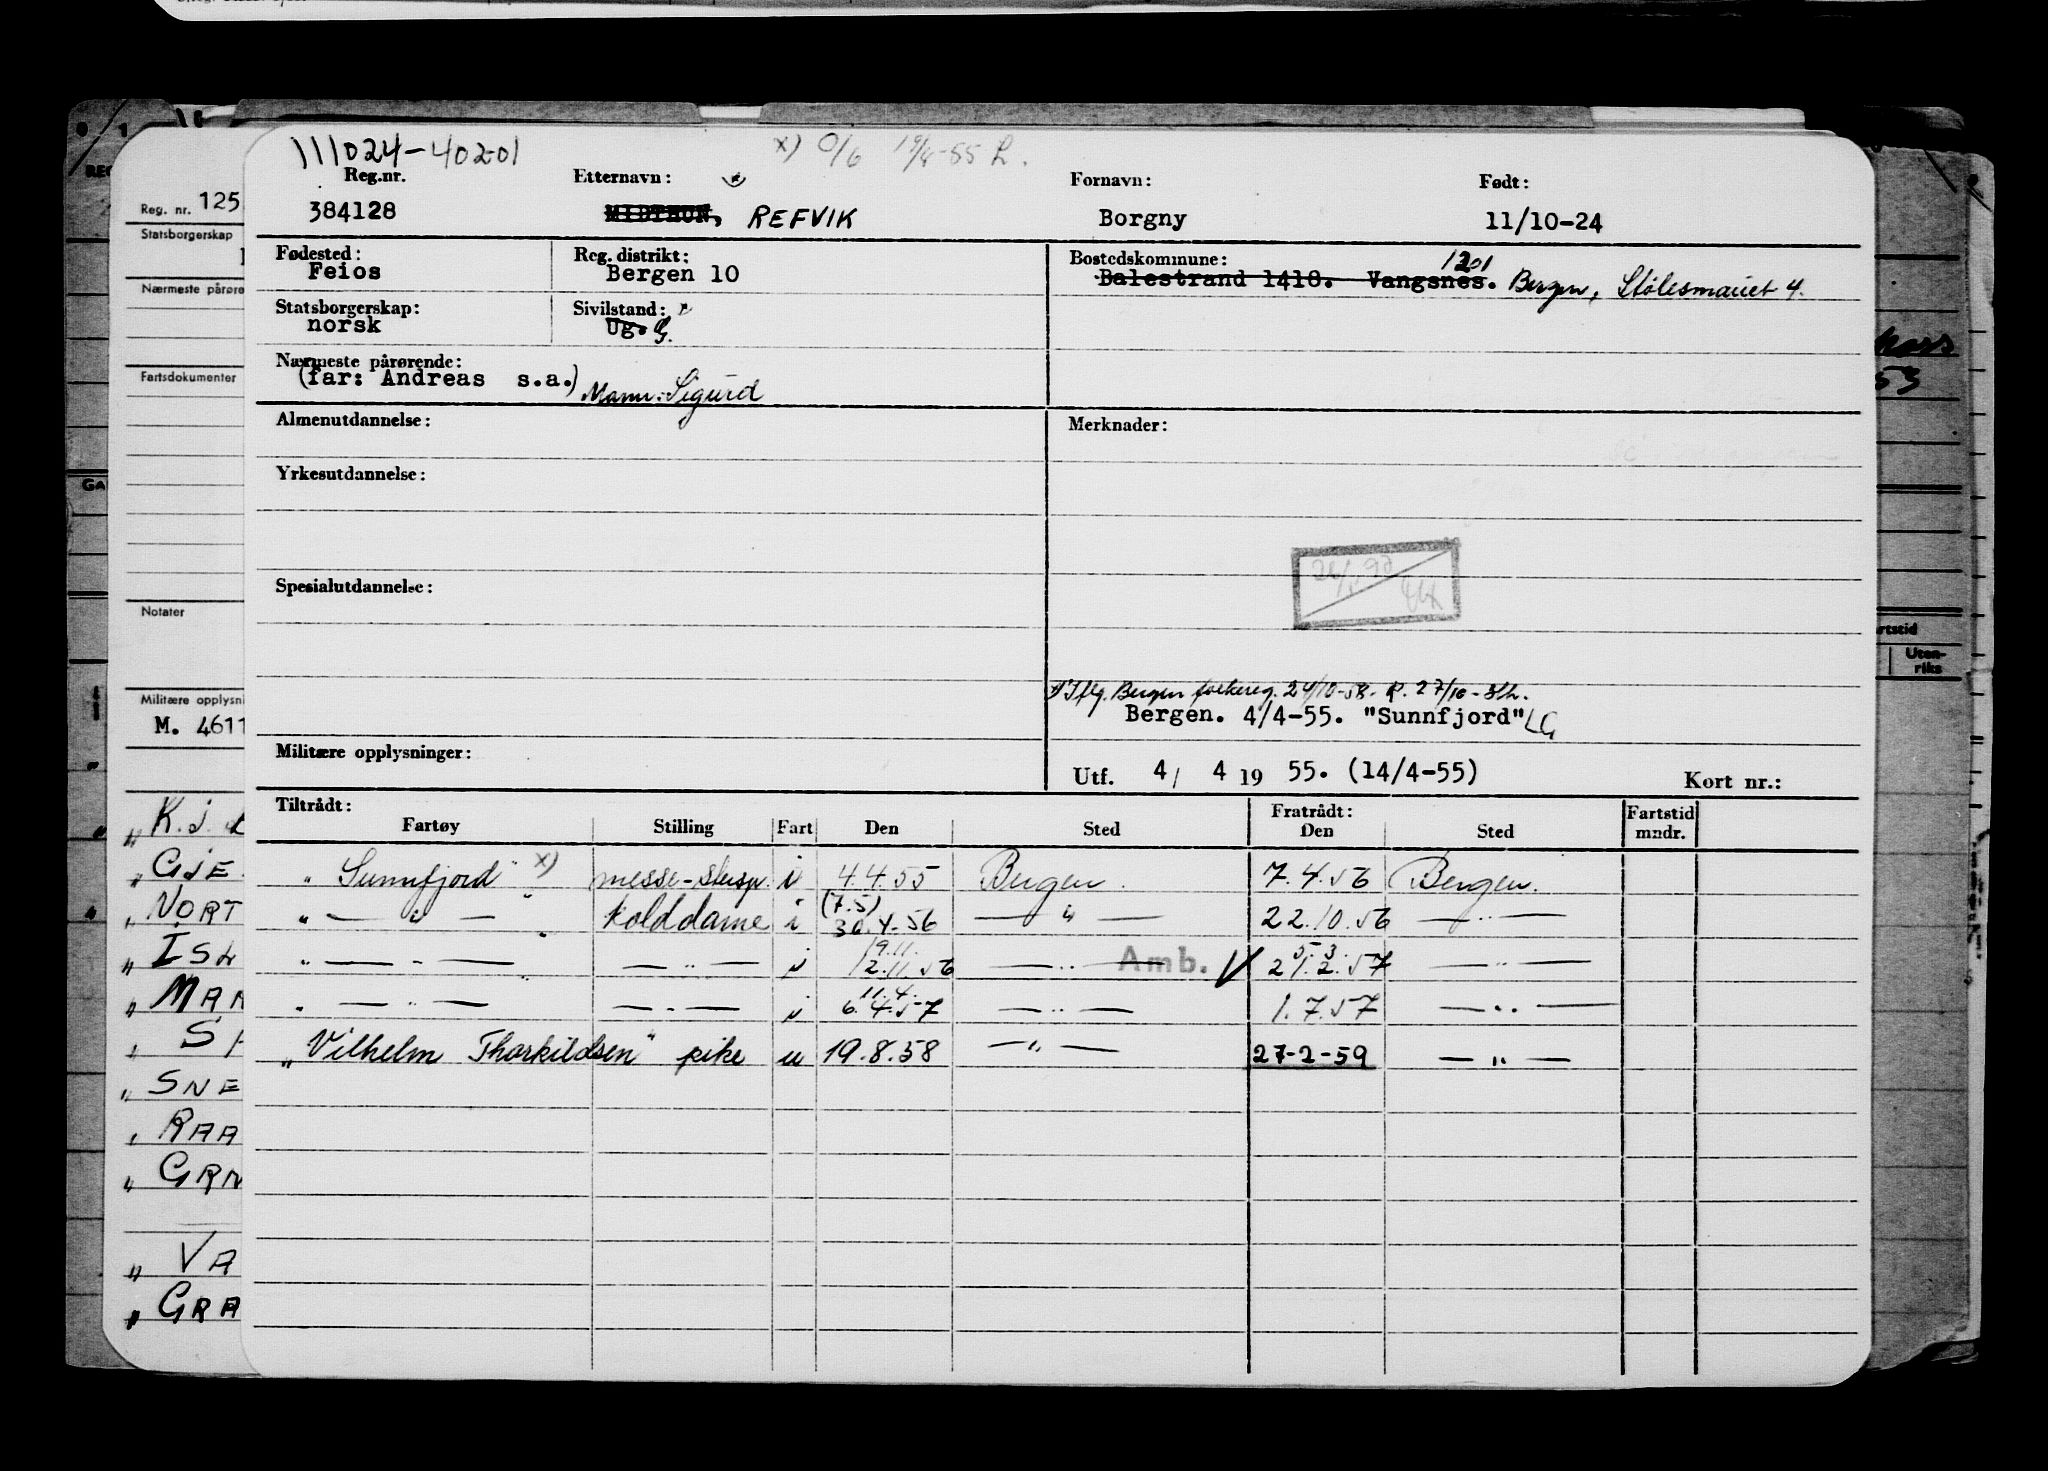 111024-40201
x) 0/6 19/4-55 L.
Reg.nr. Etternavn: Fornavn: Født:
384128 MIDTHUN, REFVIK Borgny 11/10-24
Fødested: Reg. distrikt: Bostedskommune: 1201
Feios Bergen 10 Balestrand 1418. Vangsnes. Bergen, Stølesmauet 4.
Statsborgerskap: Sivilstand: x
norsk Ug. G.
Nærmeste pårørende:
(far: Andreas s.a.) Mann: Sigurd
Almenutdannelse: Merknader:
Yrkesutdannelse:
Spesialutdannelse:
x) Iflg. Bergen folkereg. 24/10-58. R. 27/10-
Bergen. 4/4-55. "Sunnfjord" LG
Militære opplysninger: Utf. 4/ 4 19 55. (14/4-55) Kort nr.:
Tiltrådt: Fratrådt: Fartstid
Fartøy Stilling Fart Den Sted Den Sted mndr.
"Sunnfjord" x) messe-sterisp. i 4.4.55 Bergen. 7.4.56 Bergen.
" — " — " kolddame i (7.5) 30.4.56 — " — 22.10.56 — " —
" — " — " — " — i 19.11. 12.11.56 — " — Amb. V 5.3. 21.2.57 — " —
" — " — " — " — i 11.4. 6.4.57 — " — 1.7.57 — " —
"Vilhelm Thorkildsen" pike u 19.8.58 — " — 27-2-59 — " —
Reg. nr. 125
Statsborgerskap
Nærmeste pårøre
Fartsdokumenter
Notater
Militære opplysni
M. 4611
" K. J.
" GJE
" NORT
" ISL
" MAR
" SNE
" RAA
" GRN
" VA
" GRA
53
rtstid
Uten-
riks